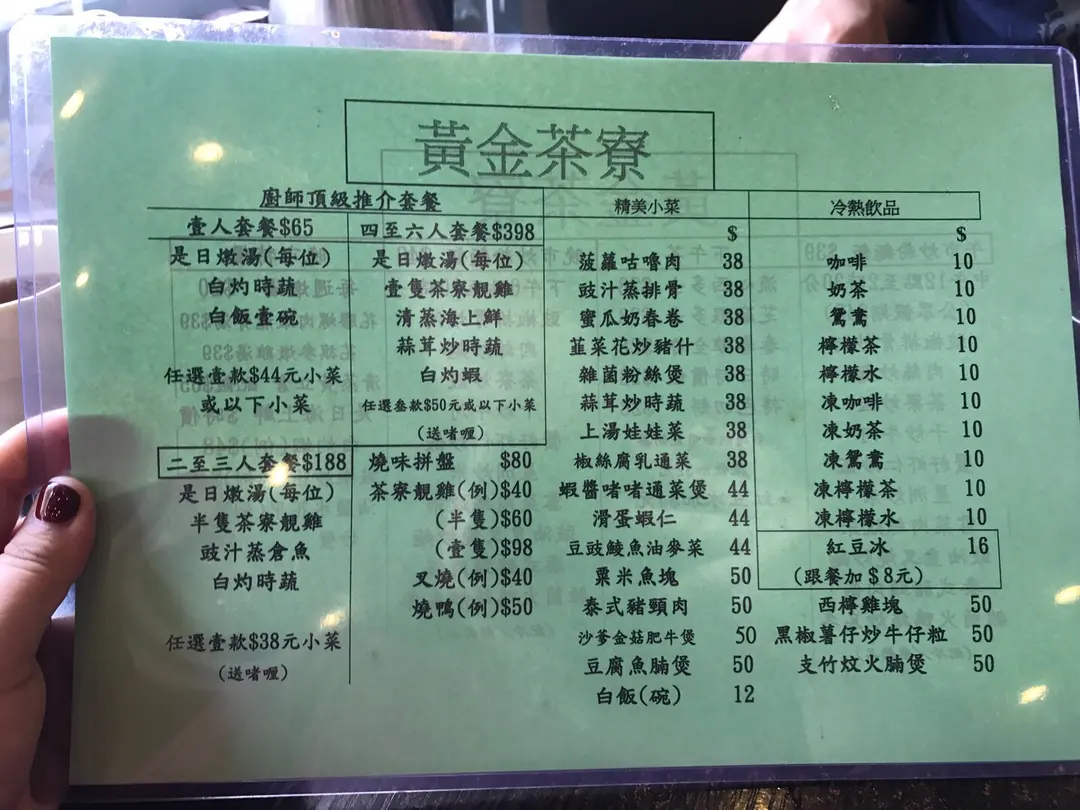 黃金茶寮
廚師頂級推介套餐
壹人套餐$65
是日燉湯(每位)
白灼時蔬
白飯壹碗
任選壹款$44元小菜
或以下小菜
二至三人套餐$188
是日燉湯(每位)
半隻茶寮靚雞
豉汁蒸倉魚
白灼時蔬
任選壹款$38元小菜
(送啫喱)
四至六人套餐$398
是日燉湯(每位)
壹隻茶寮靚雞
清蒸海上鮮
蒜茸炒時蔬
白灼蝦
任選叁款$50元或以下小菜
(送啫喱)
燒味拼盤 $80
茶寮靚雞(例)$40
(半隻)$60
(壹隻)$98
叉燒(例)$40
燒鴨(例)$50
精美小菜
$
菠蘿咕嚕肉 38
豉汁蒸排骨 38
蜜瓜奶春卷 38
韮菜花炒豬什 38
雜菌粉絲煲 38
蒜茸炒時蔬 38
上湯娃娃菜 38
椒絲腐乳通菜 38
蝦醬啫啫通菜煲 44
滑蛋蝦仁 44
豆豉鯪魚油麥菜 44
粟米魚塊 50
泰式豬頸肉 50
沙爹金菇肥牛煲 50
豆腐魚腩煲 50
白飯(碗) 12
冷熱飲品
$
咖啡 10
奶茶 10
鴛鴦 10
檸檬茶 10
檸檬水 10
凍咖啡 10
凍奶茶 10
凍鴛鴦 10
凍檸檬茶 10
凍檸檬水 10
紅豆冰 16
(跟餐加$8元)
西檸雞塊 50
黑椒薯仔炒牛仔粒 50
支竹炆火腩煲 50